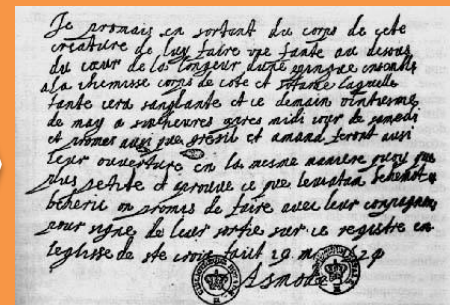 Je promais en sortant du corps de cete
creature de luy faire une fante au dessous
du cœur de la longeur dune epingue ensambl
a la chemisse corps de cote et sotane laquelle
fante cera sanglante et ce demain vintiesme
de may a heures apres midi iour de samedi
et promes ausi que gresil et amand feront ausi
leur ouverture en la mesme maniere quoy que
plus petite et aprouve ce que leviatan behemot
beherie on promis de faire avec leur compagnon
pour signe de leur sortie sur ce registre en
leglisse de ste croix fait 19 may 
Asmodé